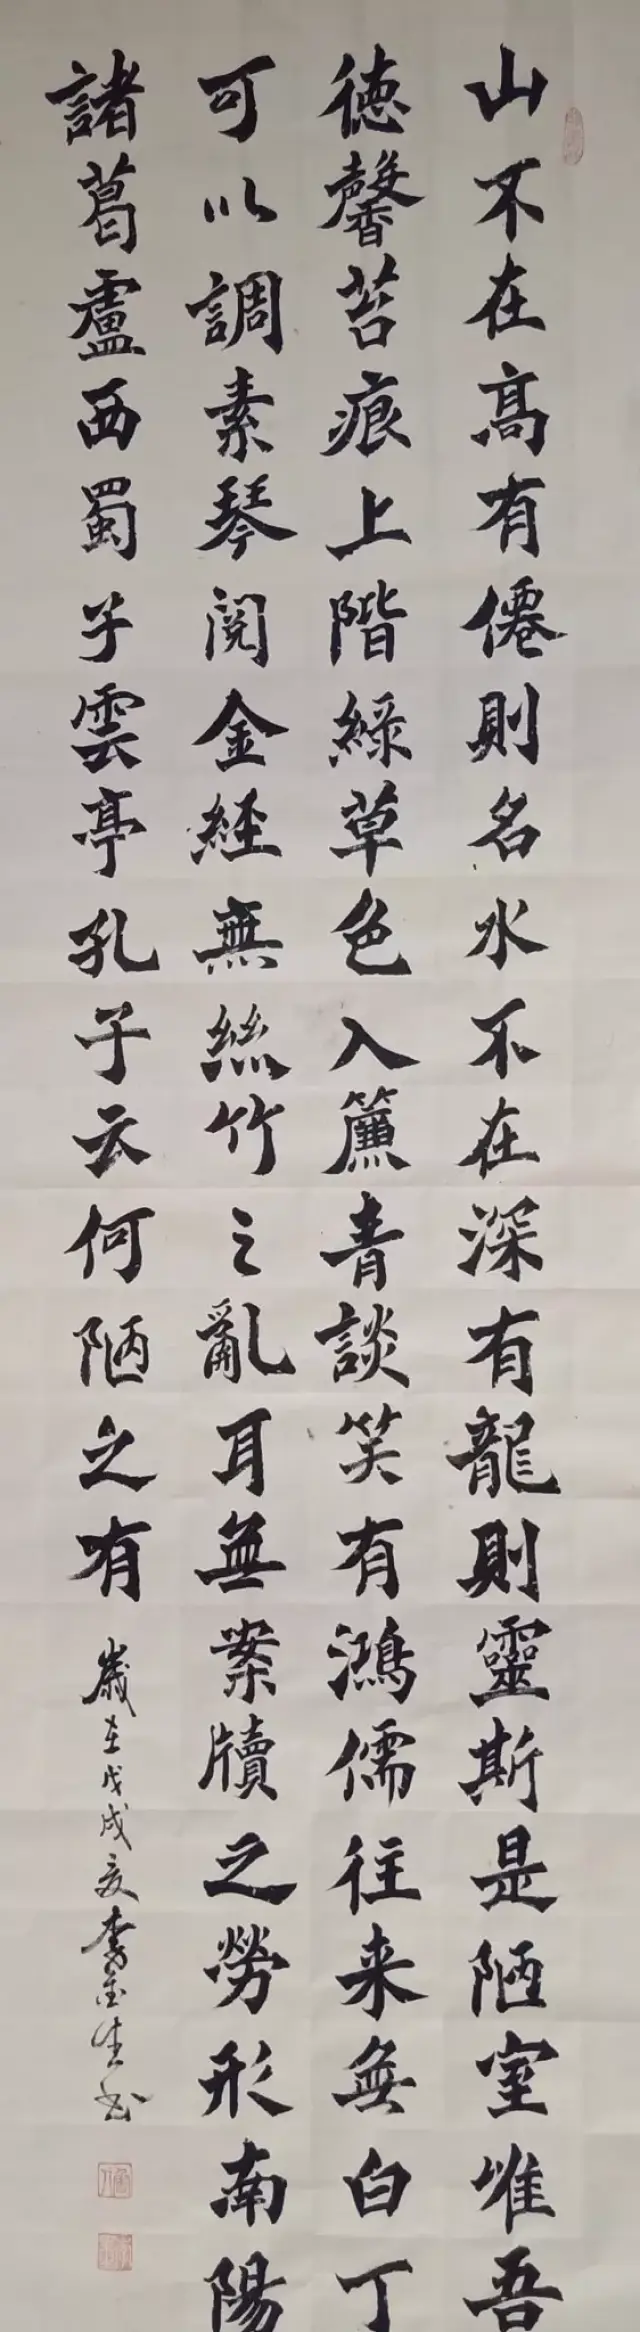 山不在高有僊則名水不在深有龍則靈斯是陋室唯吾
德馨苔痕上階緑草色入簾青談笑有鴻儒往来無白丁
可以調素琴閱金経無絲竹之亂耳無案牘之勞形南陽
諸葛盧西蜀子雲亭孔子云何陋之有
歲在戊戌夏李金生书